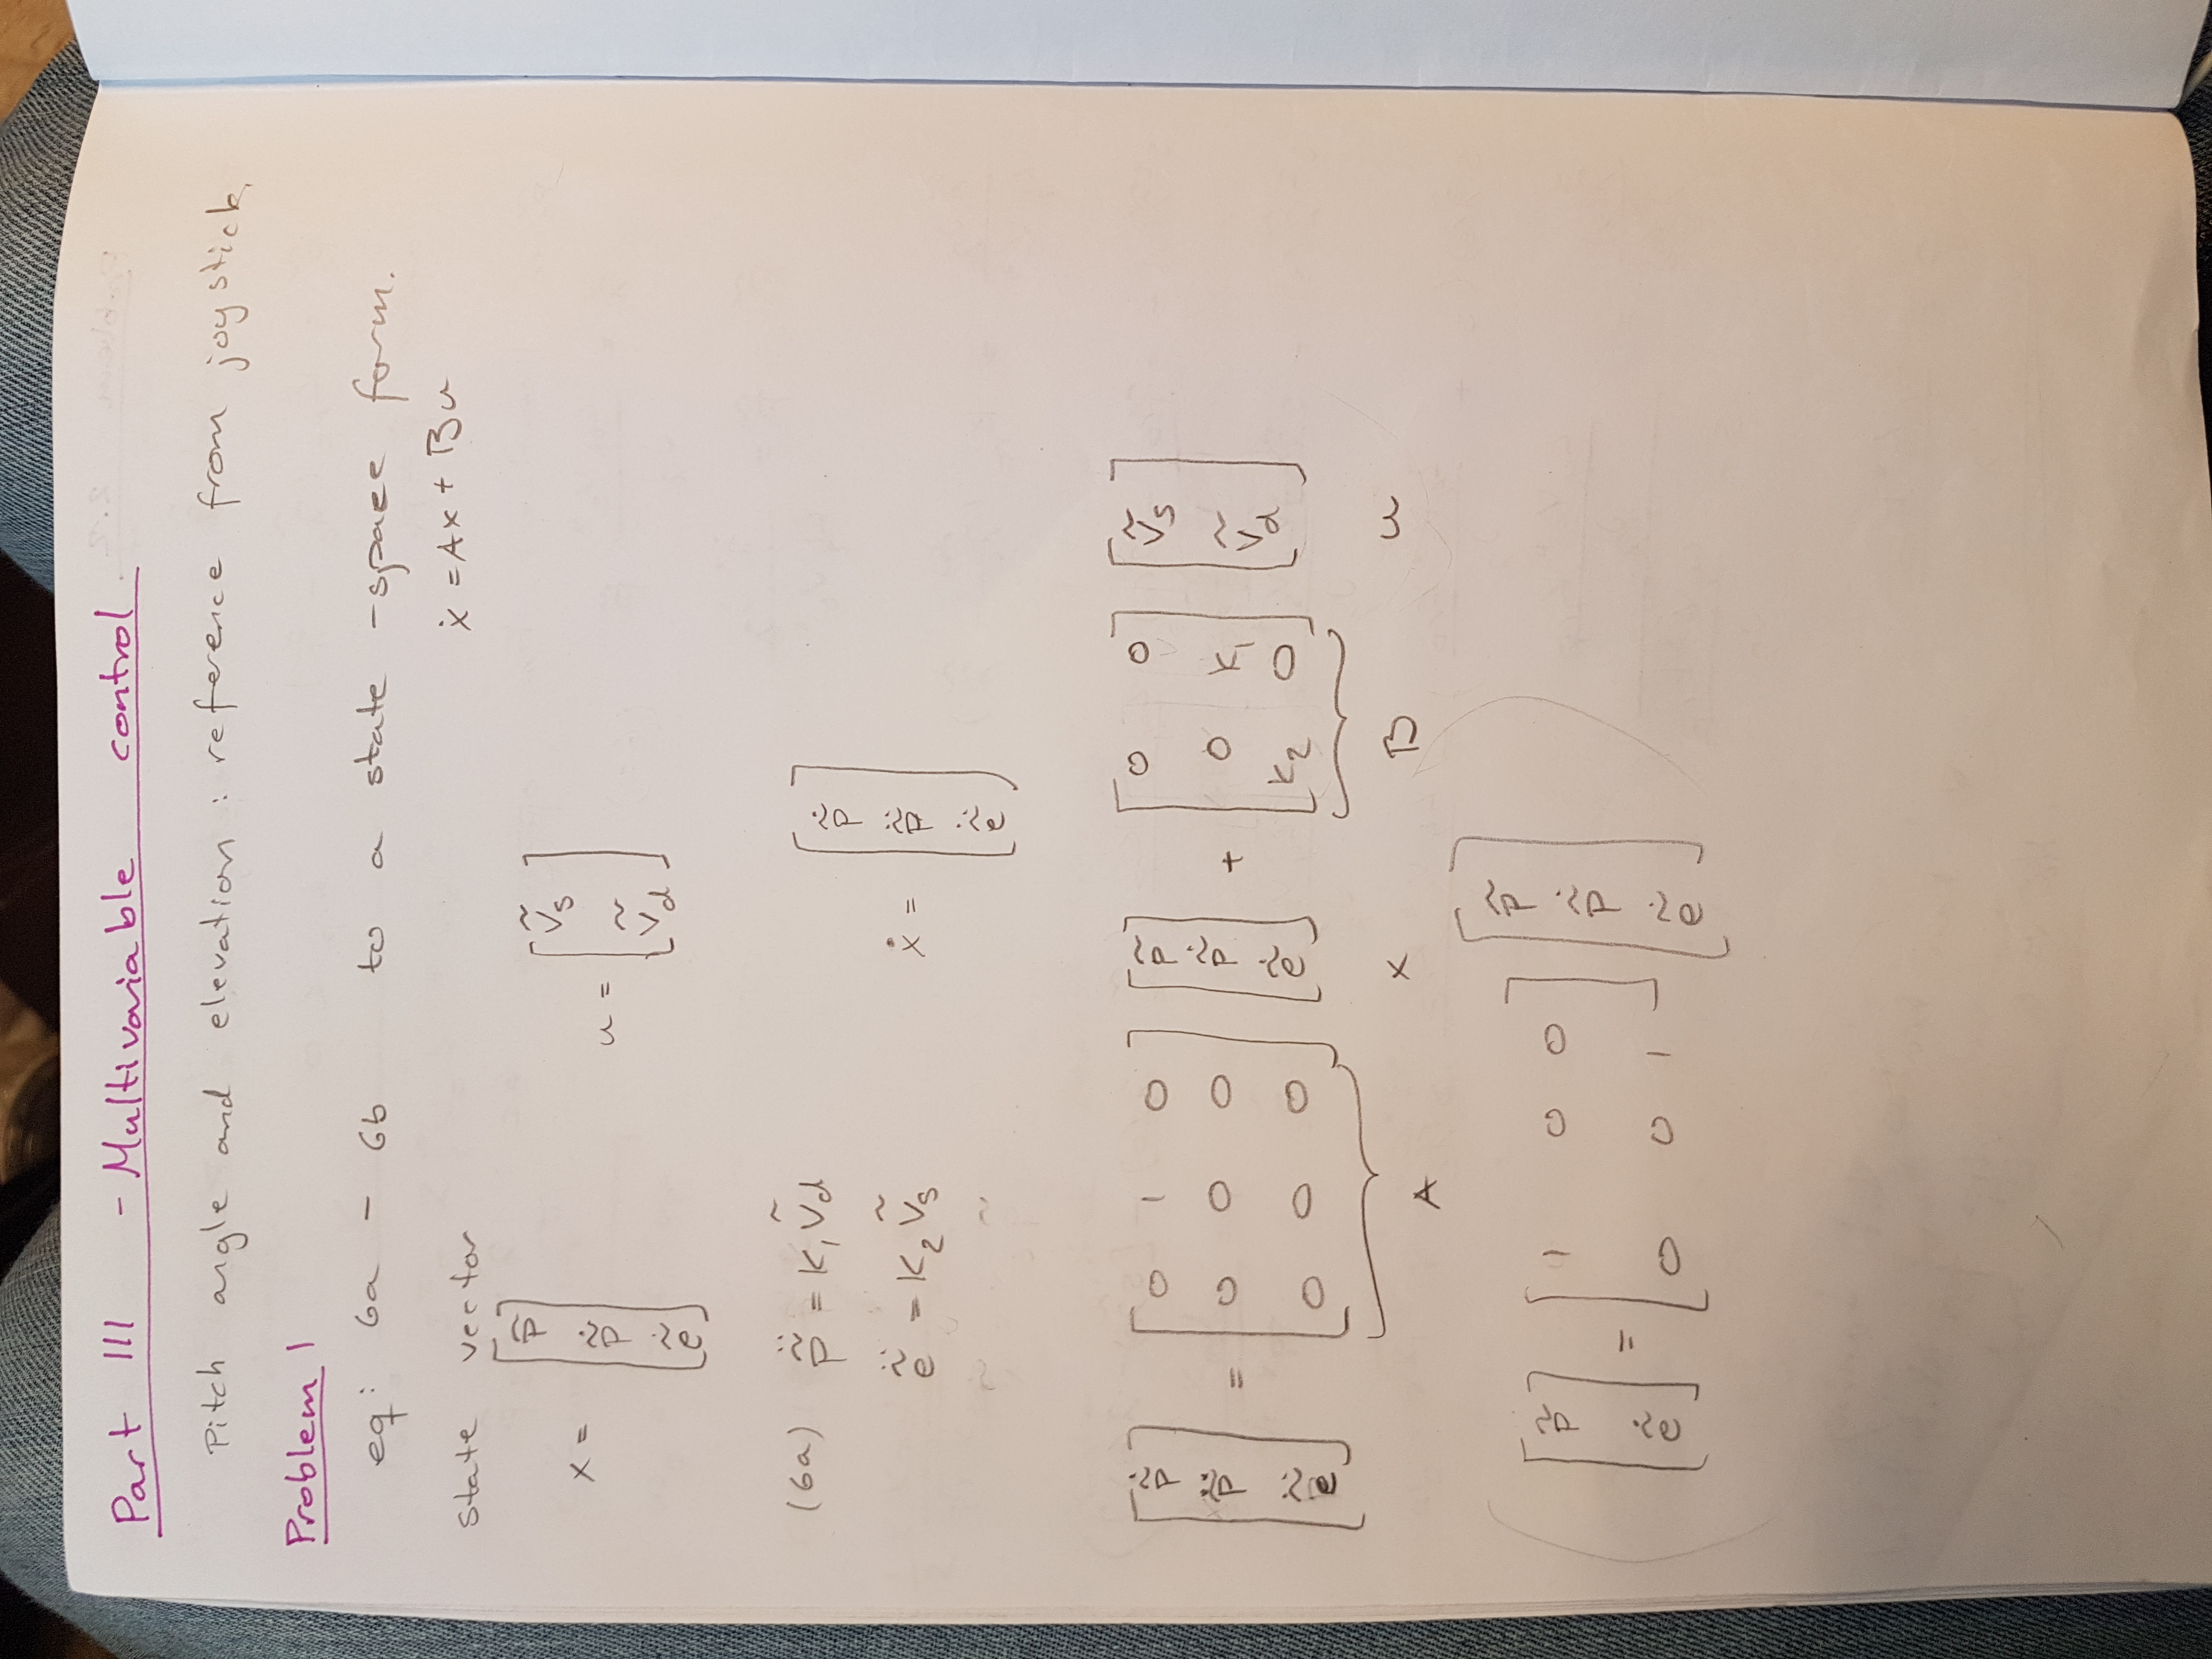 Part III - Multivariable control
Pitch angle and elevation : reference from joystick.
Problem 1
eq: 6a - 6b to a state -space form.
ẋ = Ax + Bu
state vector
x = [p̃ ; p̃̇ ; ẽ̇]
u = [Ṽs ; Ṽd]
(6a) p̃̈ = K₁Ṽd
ẽ̈ = K₂Ṽs
ẋ = [p̃̇ ; p̃̈ ; ẽ̈]
[p̃̇ ; p̃̈ ; ẽ̈] = [0 1 0 ; 0 0 0 ; 0 0 0] [p̃ ; p̃̇ ; ẽ̇] + [0 0 ; 0 K₁ ; K₂ 0] [Ṽs ; Ṽd]
A x B u
([p̃ ; ẽ̇] = [1 0 0 ; 0 0 1] [p̃ ; p̃̇ ; ẽ̇])